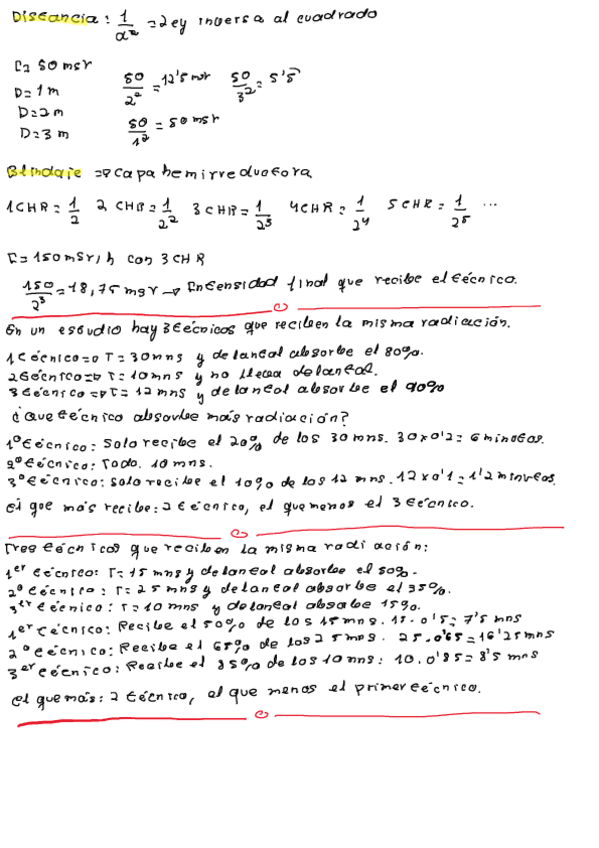 Distancia: 1/d² = Ley inversa al cuadrado
I= 50 msr
D= 1 m
D= 2 m
D= 3 m
50/2² = 12'5 msr 50/3² = 5'5
50/1² = 50 msr
Blindaje => Capa hemirreductora
1 CHR = 1/2 2 CHR = 1/2² 3 CHR = 1/2³ 4 CHR = 1/2⁴ 5 CHR = 1/2⁵ ...
I = 150 mSr/h con 3 CHR
150/2³ = 18,75 msr → Intensidad final que recibe el técnico.
En un estudio hay 3 técnicos que reciben la misma radiación.
1 técnico => T= 30 mns y delantal absorbe el 80%.
2 técnico => T= 10 mns y no lleva delantal.
3 técnico => T= 12 mns y delantal absorbe el 90%
¿Que técnico absorbe más radiación?
1º técnico: Solo recibe el 20% de los 30 mns. 30x0'2= 6 minutos.
2º técnico: Todo. 10 mns.
3º técnico: solo recibe el 10% de los 12 mns. 12x0'1= 1'2 minutos.
el que más recibe: 2 técnico, el que menos el 3 técnico.
Tres técnicos que reciben la misma radiación:
1er técnico: T= 15 mns y delantal absorbe el 50%.
2º técnico: T= 25 mns y delantal absorbe el 35%.
3er técnico: T= 10 mns y delantal absorbe 15%.
1er técnico: Recibe el 50% de los 15 mns. 15.0'5= 7'5 mns
2º técnico: Recibe el 65% de los 25 mns. 25.0'65= 16'25 mns
3er técnico: Recibe el 85% de los 10 mns: 10.0'85= 8'5 mns
el que más: 2 técnico, el que menos el primer técnico.